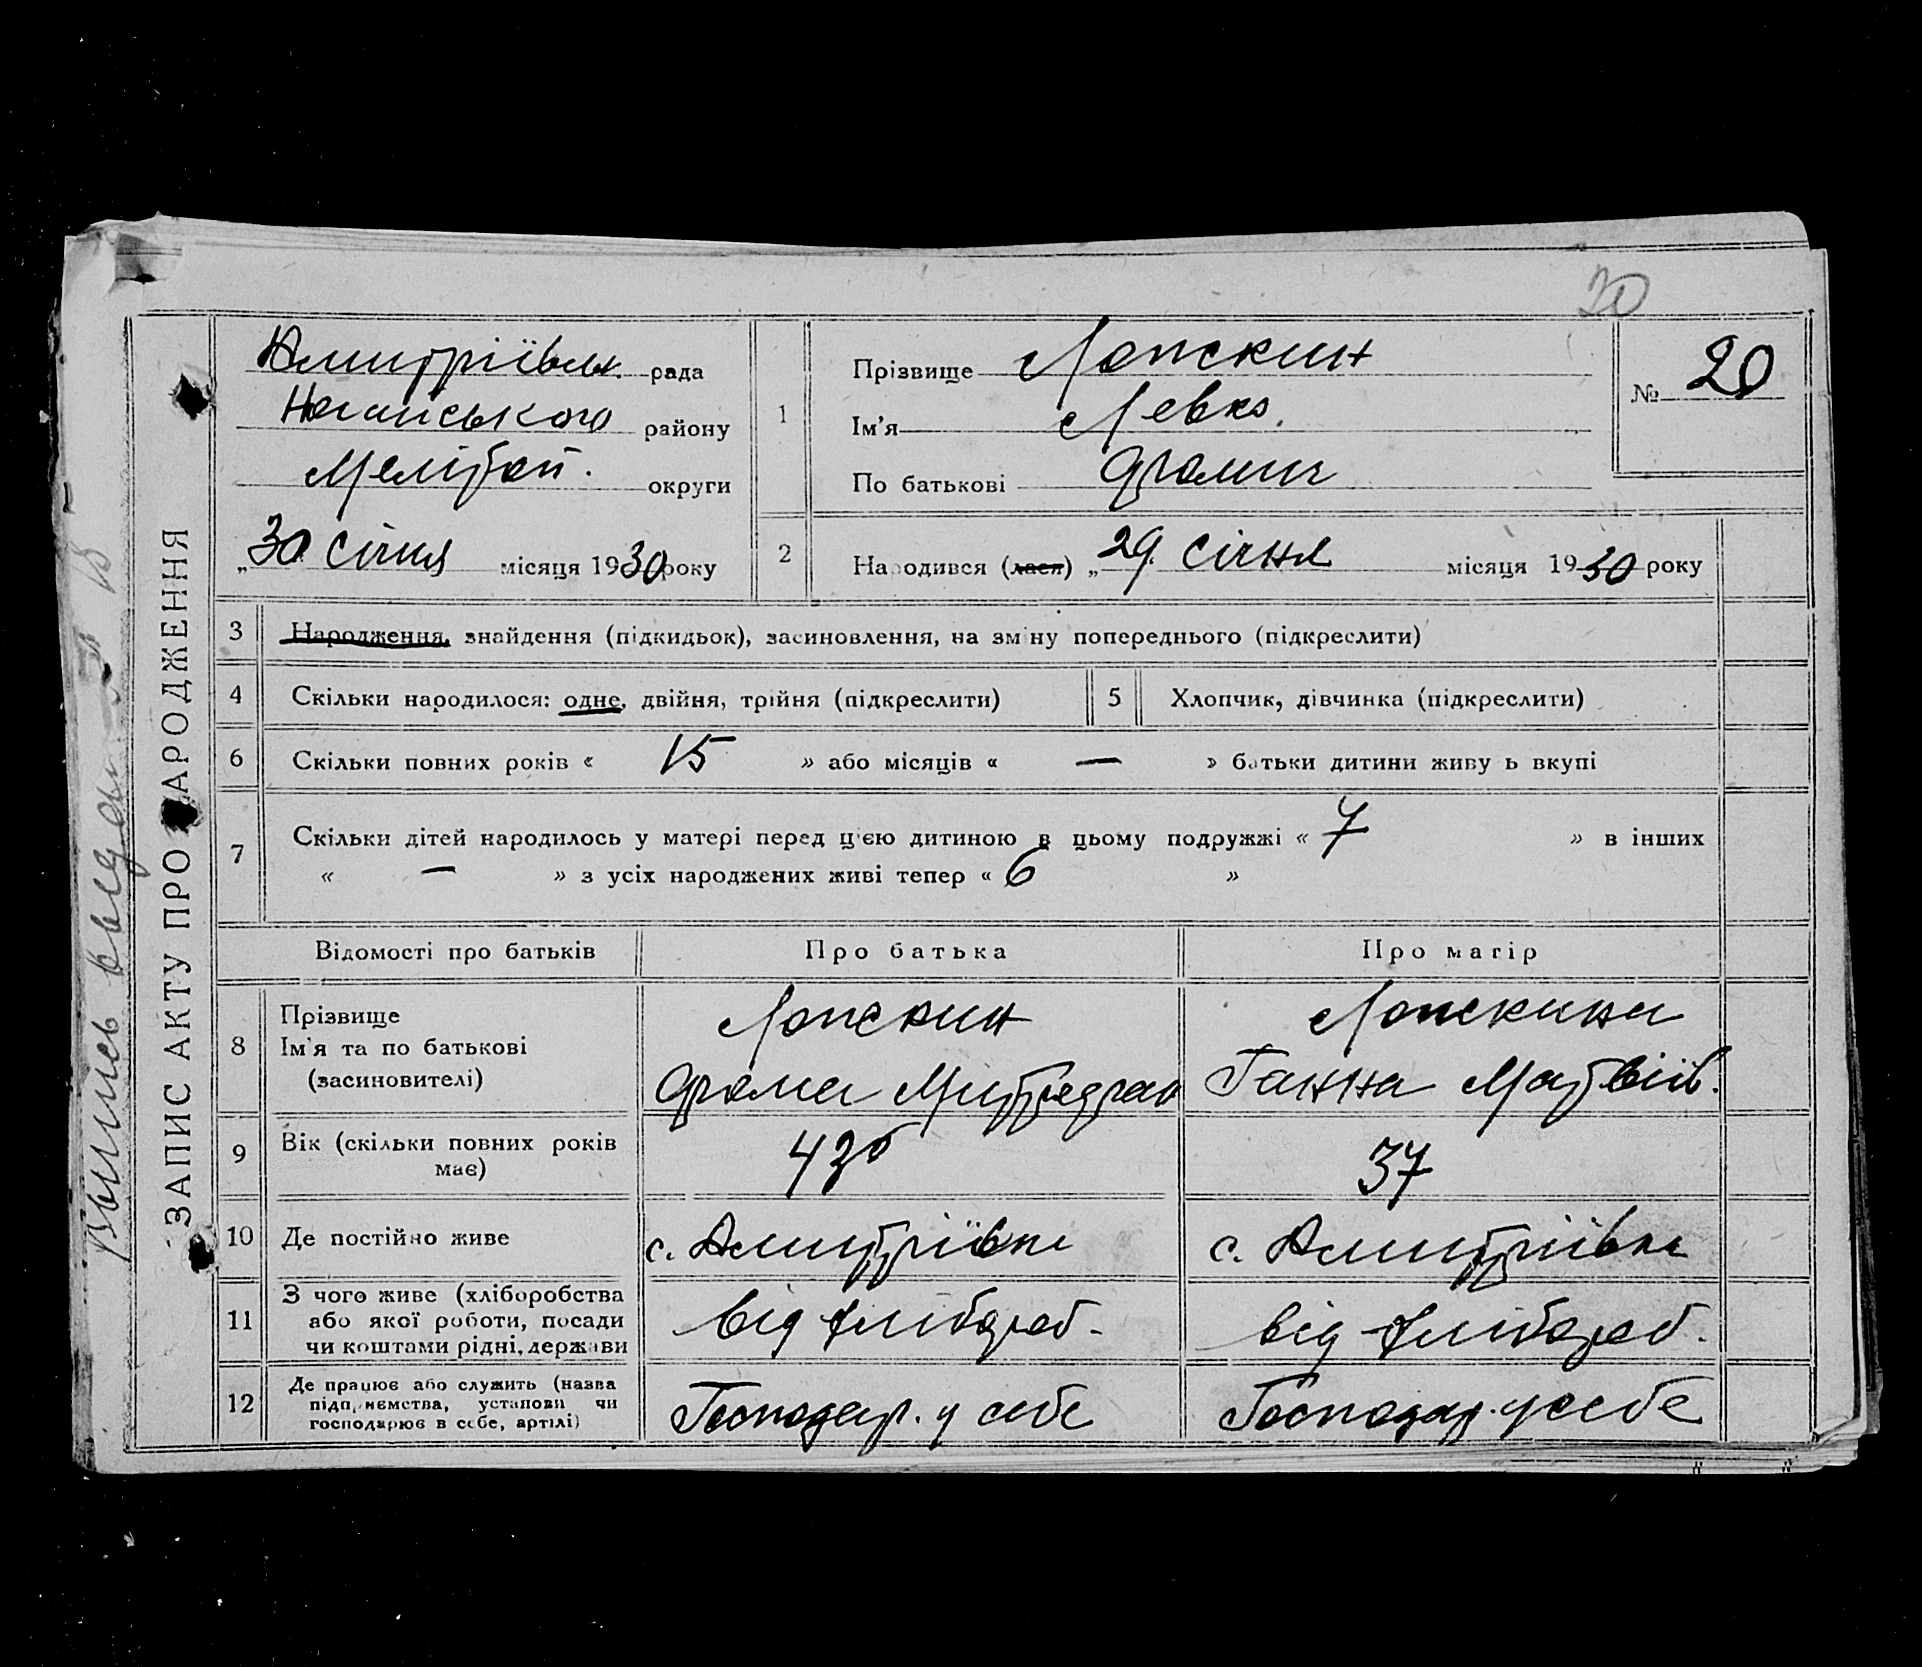 30
ЗАПИС АКТУ ПРО НАРОДЖЕННЯ
Дмитріївськ. рада
Ногайського району
Меліт округи
„30 січня місяця 1930 року
1
Прізвище Лопскин
Ім'я Левко
По батькові Фомич
№ 20
2
Народився (лася) „29 січня місяця 1930 року
3 Народження, знайдення (підкидьок), засиновлення, на зміну попереднього (підкреслити)
4 Скільки народилося: одне, двійня, трійня (підкреслити)
5 Хлопчик, дівчинка (підкреслити)
6 Скільки повних років « 15 » або місяців « — » батьки дитини живу ь вкупі
7 Скільки дітей народилось у матері перед цією дитиною в цьому подружжі « 7 » в інших
« — » з усіх народжених живі тепер « 6 »
Відомості про батьків Про батька Про матір
8 Прізвище
Ім'я та по батькові
(засиновителі)
Лопскин
Фома
Лопскина
Ганна Матвіїв.
9 Вік (скільки повних років має) 43 37
10 Де постійно живе с. Дмитрівка с. Дмитріївка
11 З чого живе (хліборобства
або якої роботи, посади
чи коштами рідні, держави
від хлібороб. від хлібороб.
12 Де працює або служить (назва
підприємства, установи чи
господарює в себе, артілі)
Господар. у себе Господар. у себе